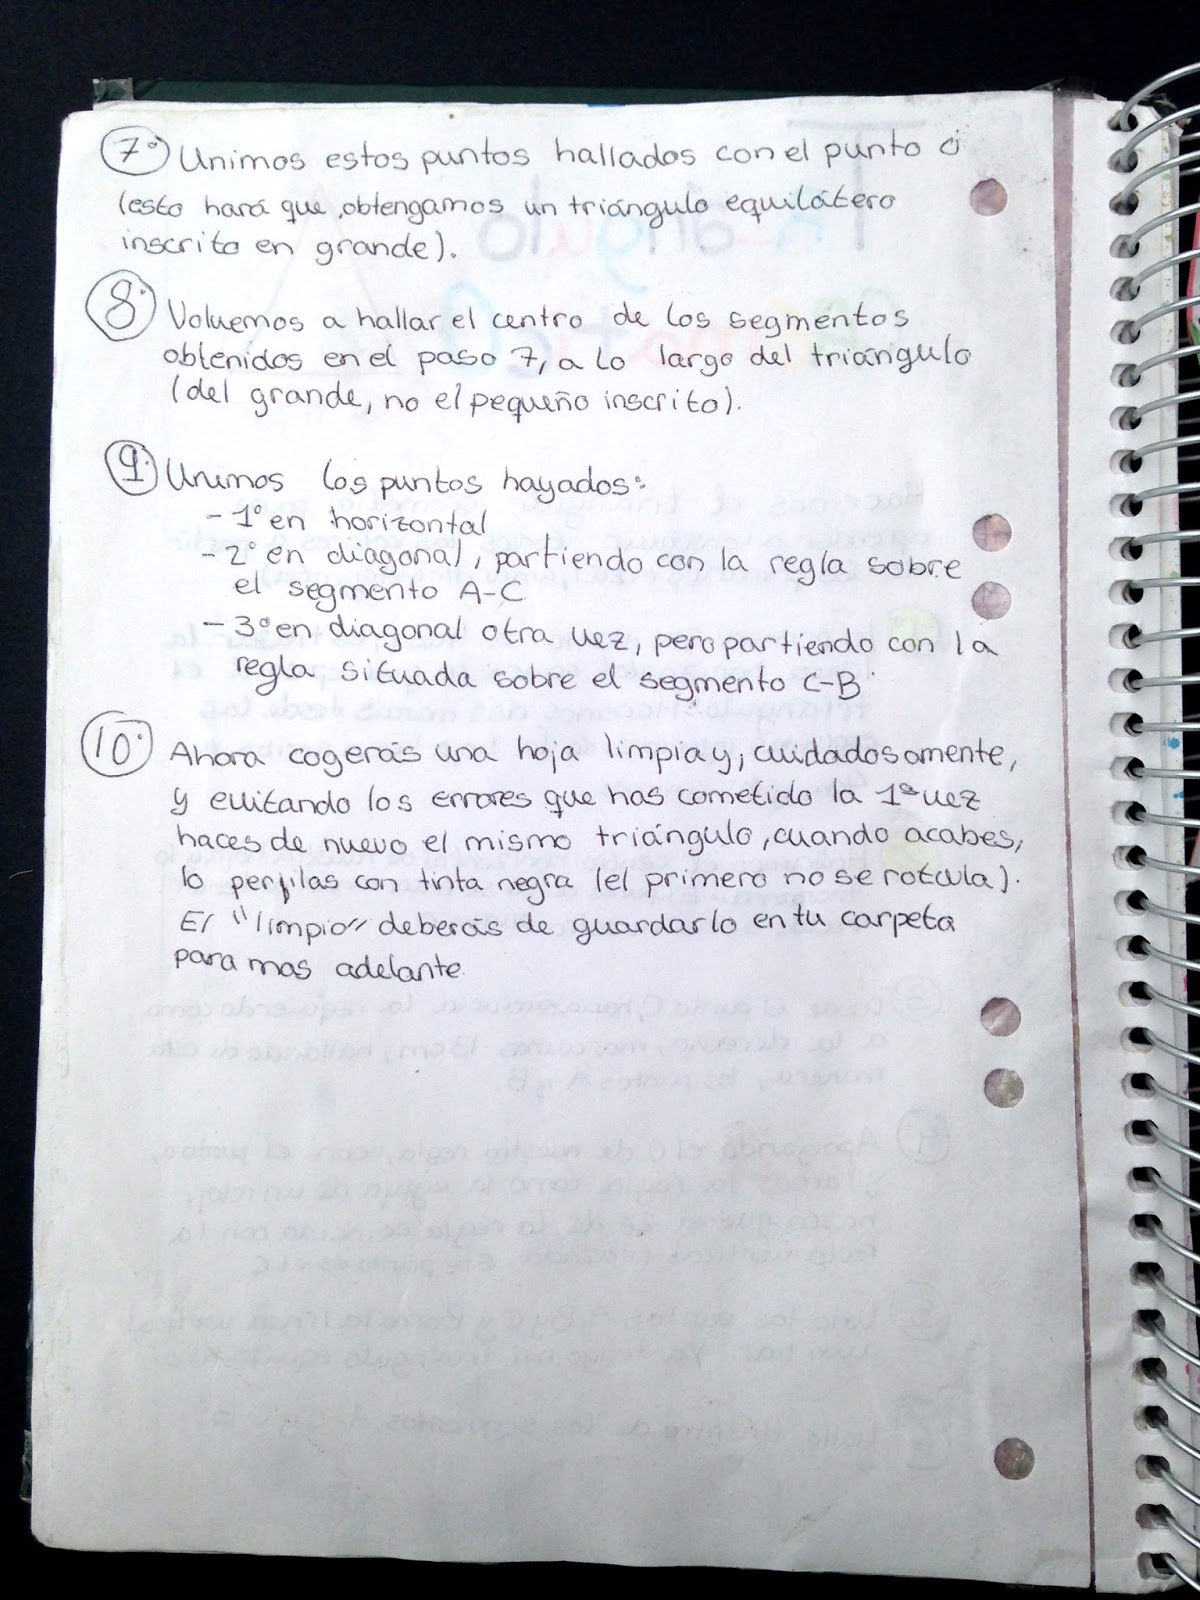 7º Unimos estos puntos hallados con el punto O
(esto hará que obtengamos un triángulo equilátero
inscrito en grande).
8º Volvemos a hallar el centro de los segmentos
obtenidos en el paso 7, a lo largo del triángulo
(del grande, no el pequeño inscrito).
9º Unimos los puntos hayados:
- 1º en horizontal
- 2º en diagonal, partiendo con la regla sobre
el segmento A-C
- 3º en diagonal otra vez, pero partiendo con la
regla situada sobre el segmento C-B.
10º Ahora cogerás una hoja limpia y, cuidadosamente,
y evitando los errores que has cometido la 1ª vez
haces de nuevo el mismo triángulo, cuando acabes,
lo perfilas con tinta negra (el primero no se rotula).
El "limpio" deberás de guardarlo en tu carpeta
para mas adelante.